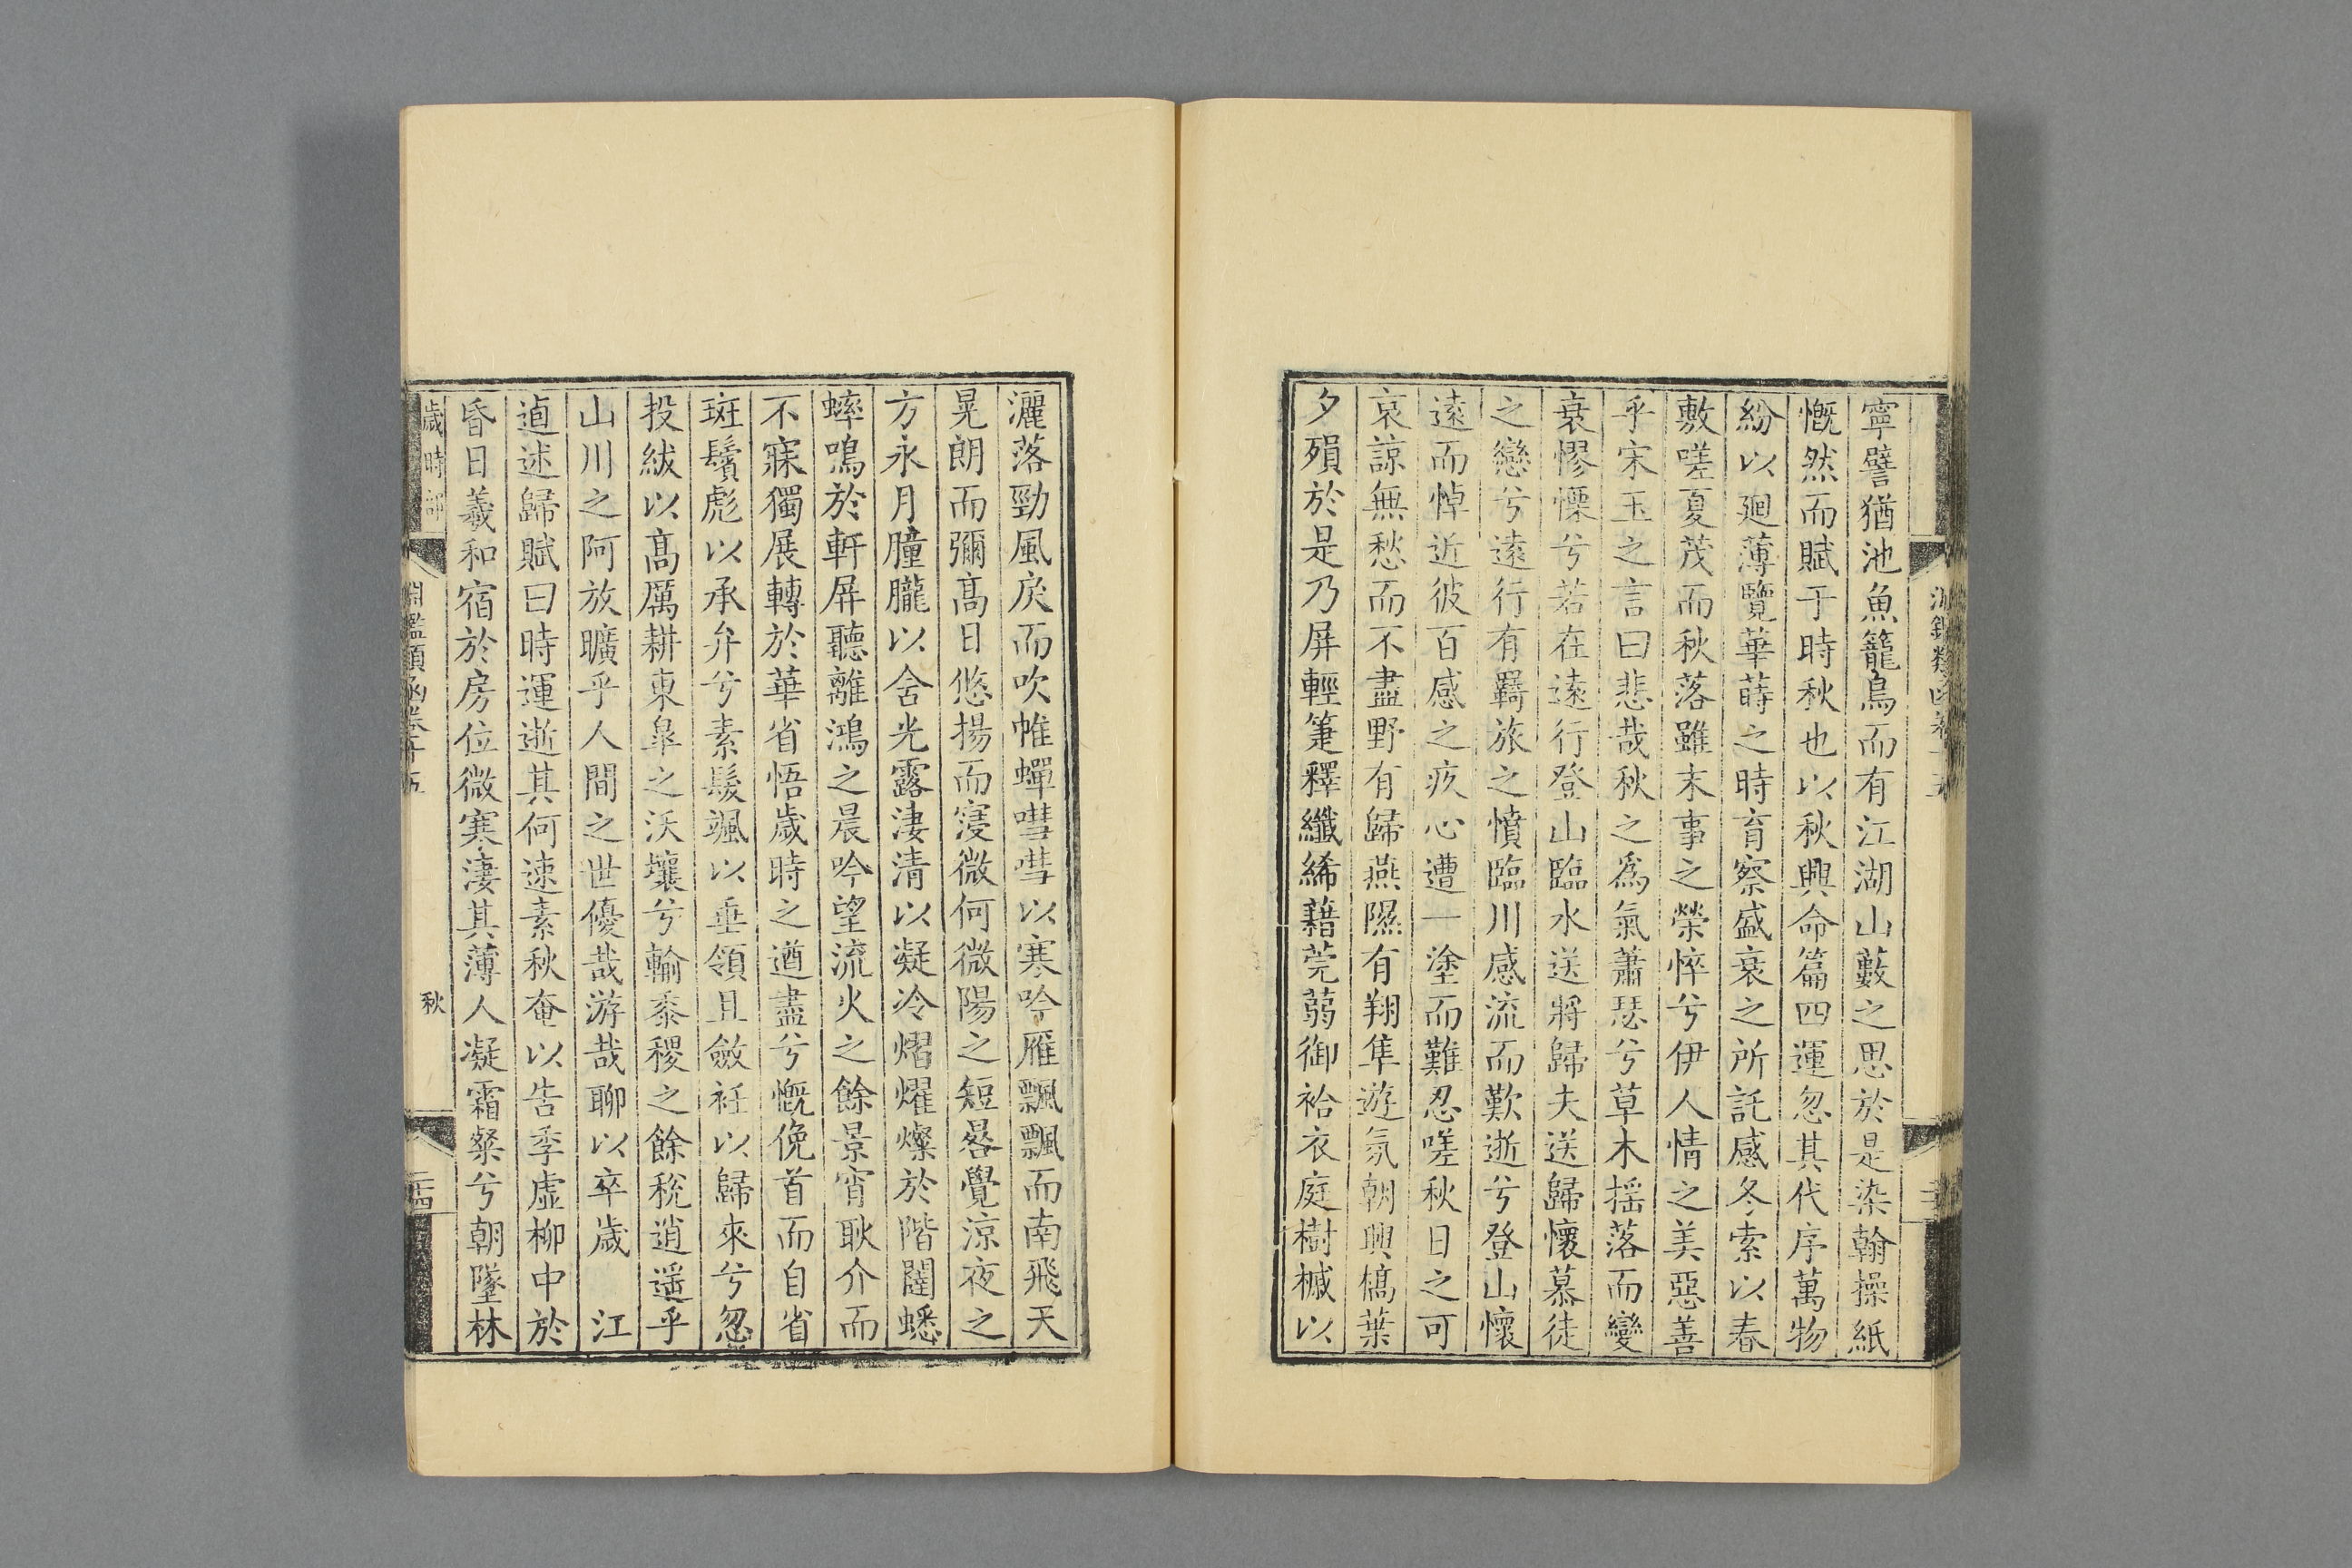 寧譬猶池魚籠鳥而有江湖山藪之思於是染翰操紙
慨然而賦于時秋也以秋興命篇四運忽其代序萬物
紛以廻薄覽華蒔之時育察盛衰之所託感冬索以春
敷嗟夏茂而秋落雖末事之榮悴兮伊人情之美惡善
乎宋玉之言曰悲哉秋之爲氣蕭瑟兮草木揺落而變
衰憀慄兮若在遠行登山臨水送將歸夫送歸懷慕徒
之戀兮遠行有羇旅之憤臨川感流而歎逝兮登山懷
遠而悼近彼百感之疚心遭一塗而難忍嗟秋日之可
哀諒無愁而不盡野有歸燕隰有翔隼遊氛朝興槁葉
夕殞於是乃屏輕箑釋纖絺藉莞蒻御袷衣庭樹槭以
灑落勁風戾而吹帷蟬嘒嘒以寒吟雁飄飄而南飛天
晃朗而彌髙日悠揚而寖微何微陽之短晷覺涼夜之
方永月朣朧以含光露凄清以凝冷熠燿燦於階闥蟋
蟀鳴於軒屏聽離鴻之晨吟望流火之餘景宵耿介而
不寐獨展轉於華省悟歲時之遒盡兮慨俛首而自省
斑鬢彪以承弁兮素髮颯以垂領且斂衽以歸來兮忽
投紱以髙厲耕東皐之沃壤兮輸黍稷之餘稅逍遥乎
山川之阿放曠乎人間之世優哉游哉聊以卒歲　江
逌述歸賦曰時運逝其何速素秋奄以告季虛柳中於
昏日羲和宿於房位微寒凄其薄人凝霜粲兮朝墜林
歲時部
淵鑑類函卷十五
秋
二十四